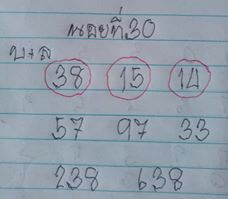 นอยที่30
บ+ล
38 15 14
57 97 33
238 638